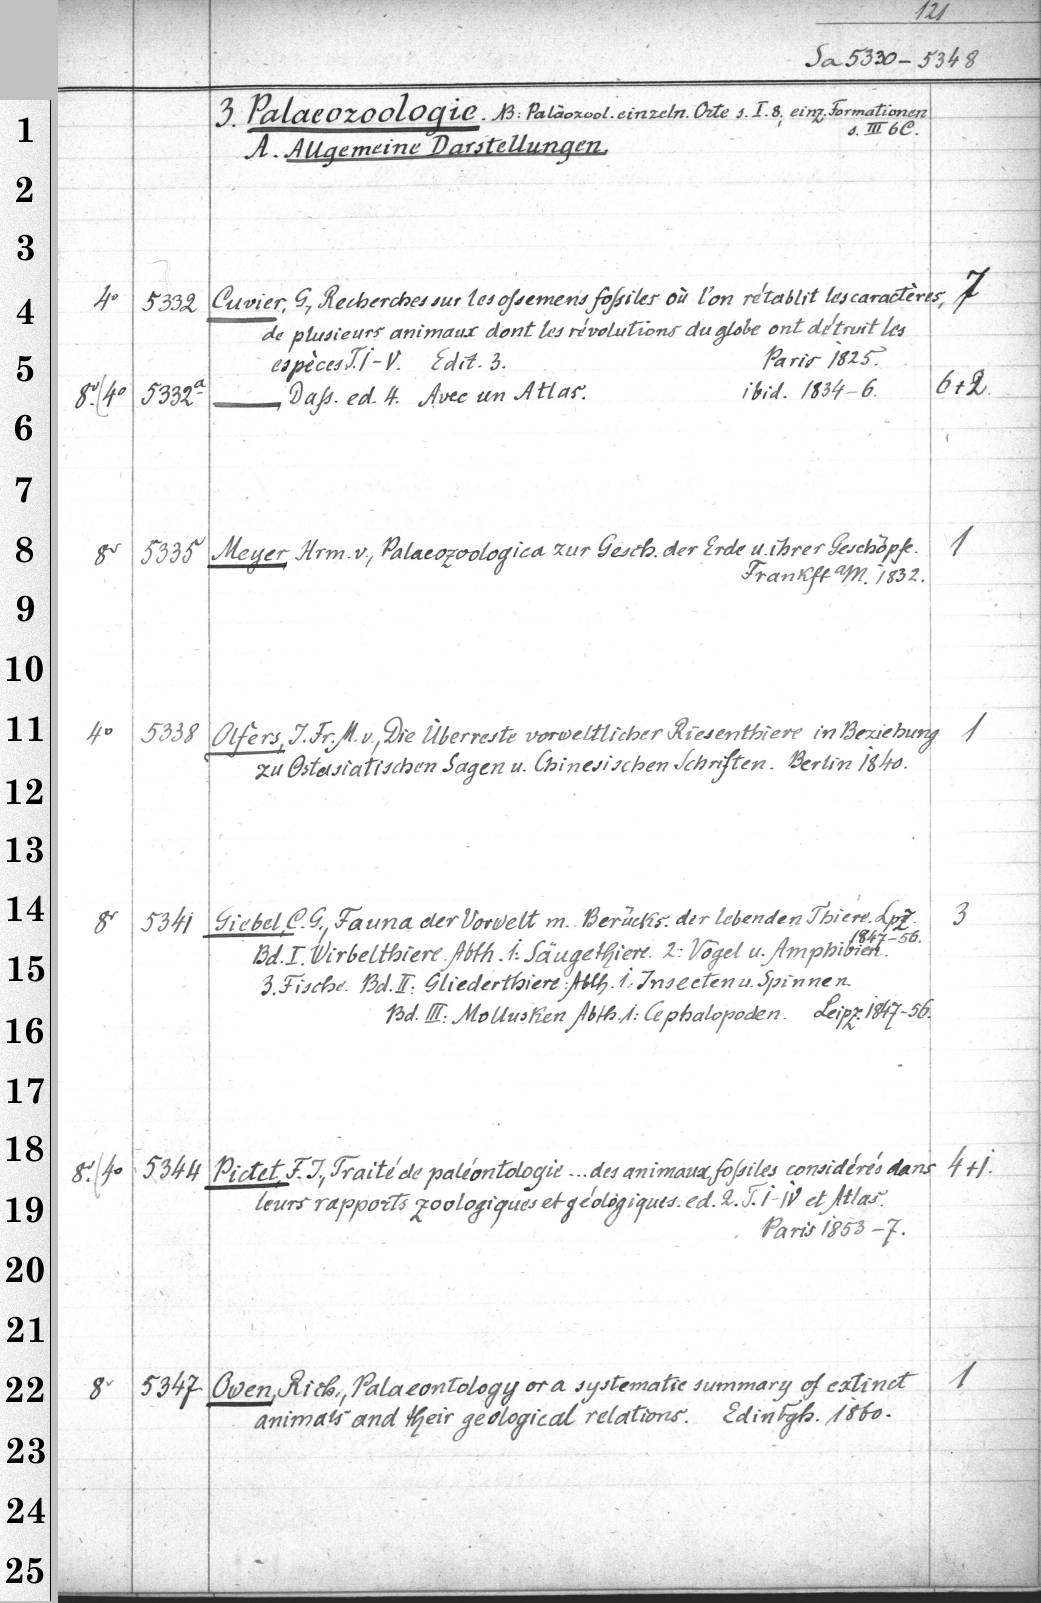 121
Sa 5330 – 5348
1
3. Palaeozoologie. NB: Paläozool. einzeln. Orte s. I. 8, einz. Formationen
s. III 6C.
A. Allgemeine Darstellungen.
2
3
4
4° 5332 Cuvier, G., Recherches sur les ossemens foßiles où l'on rétablit les caractères, 7
de plusieurs animaux dont les révolutions du globe ont détruit les
5
espèces T. I–V. Edit. 3. Paris 1825.
8°./4° 5332a ____, Daß. ed. 4. Avec un Atlas. ibid. 1834–6. 6+2
6
7
8
8° 5335 Meyer, Hrm. v., Palaeozoologica zur Gesch. der Erde u. ihrer Geschöpfe. 1
Frankft a/M. 1832.
9
10
11
4° 5338 Olfers, J. Fr. M. v., Die Überreste vorweltlicher Riesenthiere in Beziehung 1
zu Ostasiatischen Sagen u. Chinesischen Schriften. Berlin 1840.
12
13
14
8° 5341 Giebel, C. G., Fauna der Vorwelt m. Berücks. der lebenden Thiere. Lpz. 3
1847–56.
Bd. I. Wirbelthiere. Abth. 1: Säugethiere. 2: Vögel u. Amphibien.
15
3. Fische. Bd. II: Gliederthiere: Abth. 1: Insecten u. Spinnen.
16
Bd. III: Mollusken Abth. 1: Cephalopoden. Leipz. 1847–56.
17
18
8°./4° 5344 Pictet, F. J., Traité de paléontologie ... des animaux foßiles considérés dans 4+1.
19
leurs rapports zoologiques et géologiques. ed. 2. T. I–IV et Atlas.
Paris 1853–7.
20
21
22
8° 5347 Owen, Rich., Palaeontology or a systematic summary of extinct 1
animals and their geological relations. Edinbgh. 1860.
23
24
25